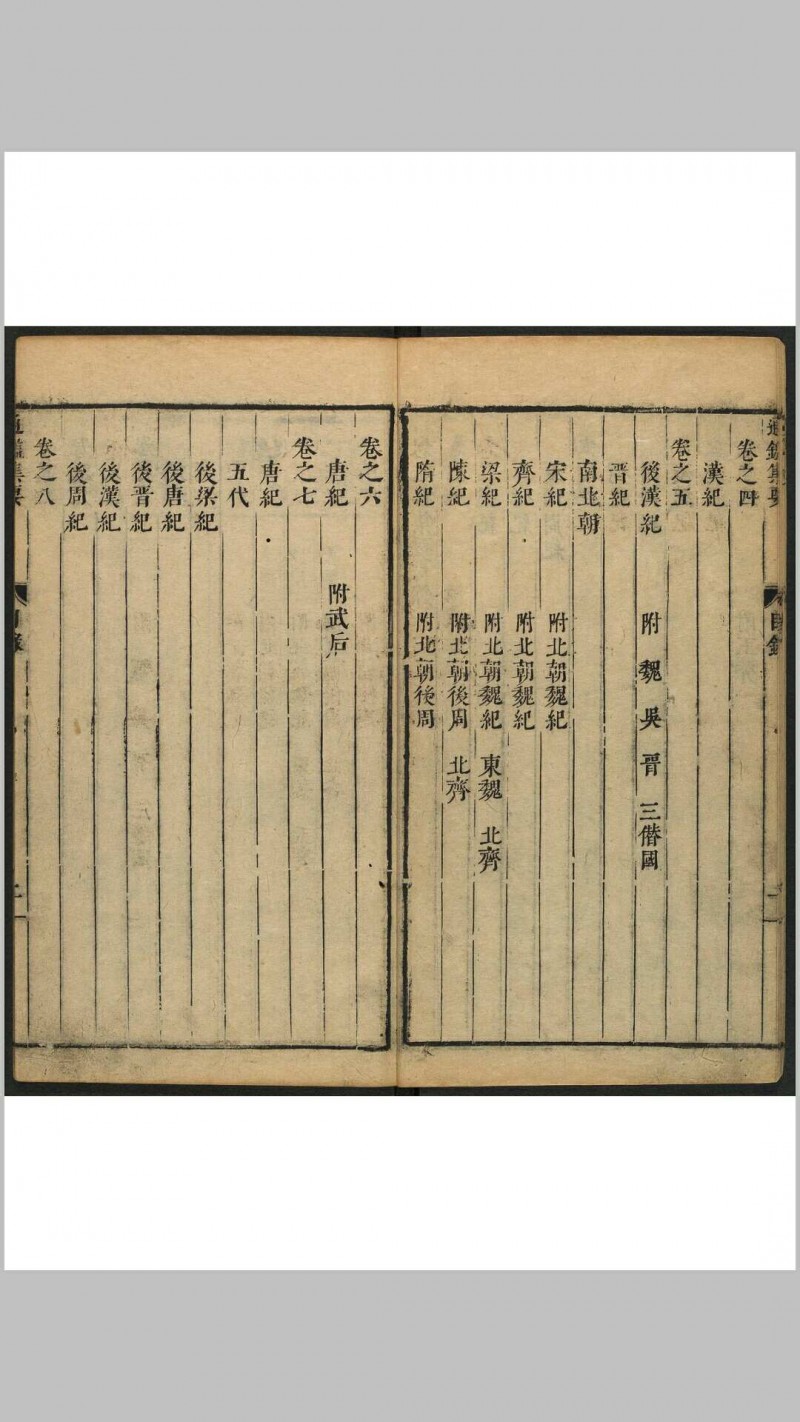 通鑑集要
目錄
卷之四
漢紀
卷之五
後漢紀　附　魏　吳　晉　三僭國
晉紀
南北朝
宋紀　附北朝魏紀
齊紀　附北朝魏紀
梁紀　附北朝魏紀　東魏　北齊
陳紀　附北朝後周　北齊
隋紀　附北朝後周
卷之六
唐紀　附武后
卷之七
唐紀
五代
後梁紀
後唐紀
後晉紀
後漢紀
後周紀
卷之八
通鑑集要
目錄